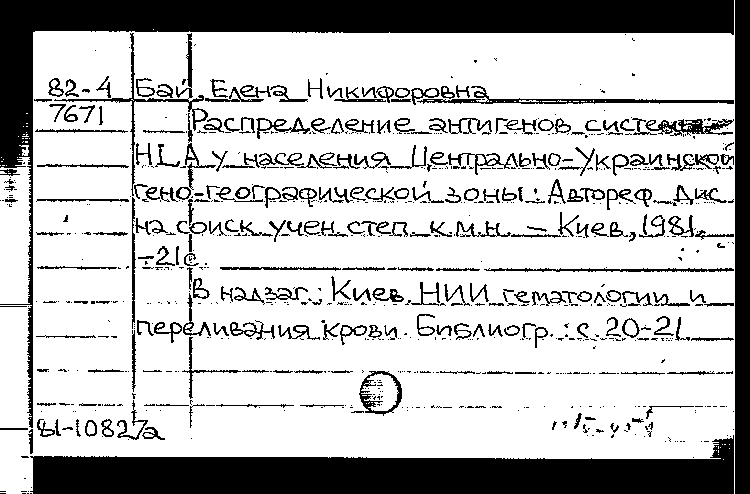 82-4 Бай, Елена Никифоровна
7671 Распределение антигенов системы
HLA у населения Центрально-Украинской
гено-географической зоны: Автореф. Дис.
на соиск. учен. степ. к.м.н. – Киев, 1981.
-21с.
В надзаг.: Киев. НИИ гематологии и
переливания крови. Библиогр.: с. 20-21
81-10827а